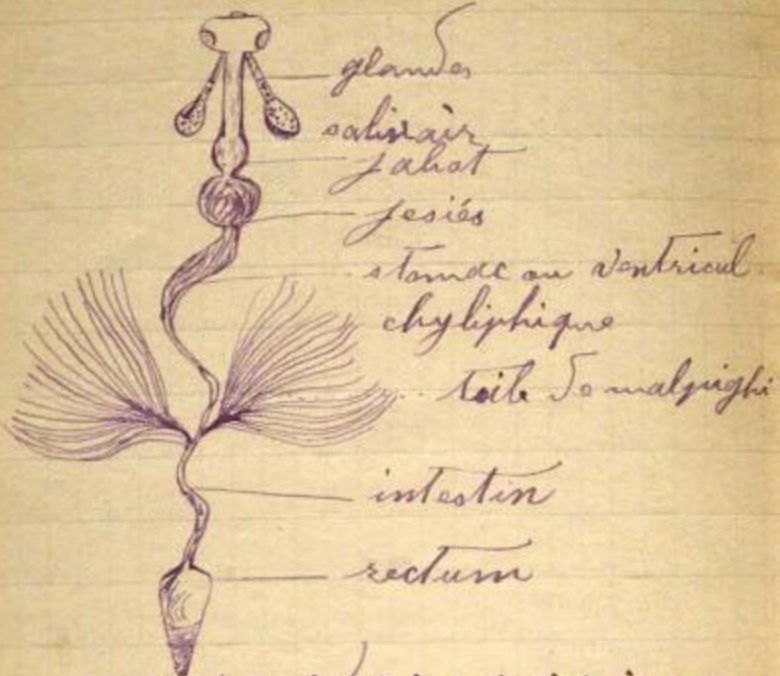 glandes
salivair
jabot
jesiés
stomac ou ventricul
chyliphique
toile de malpighi
intestin
rectum